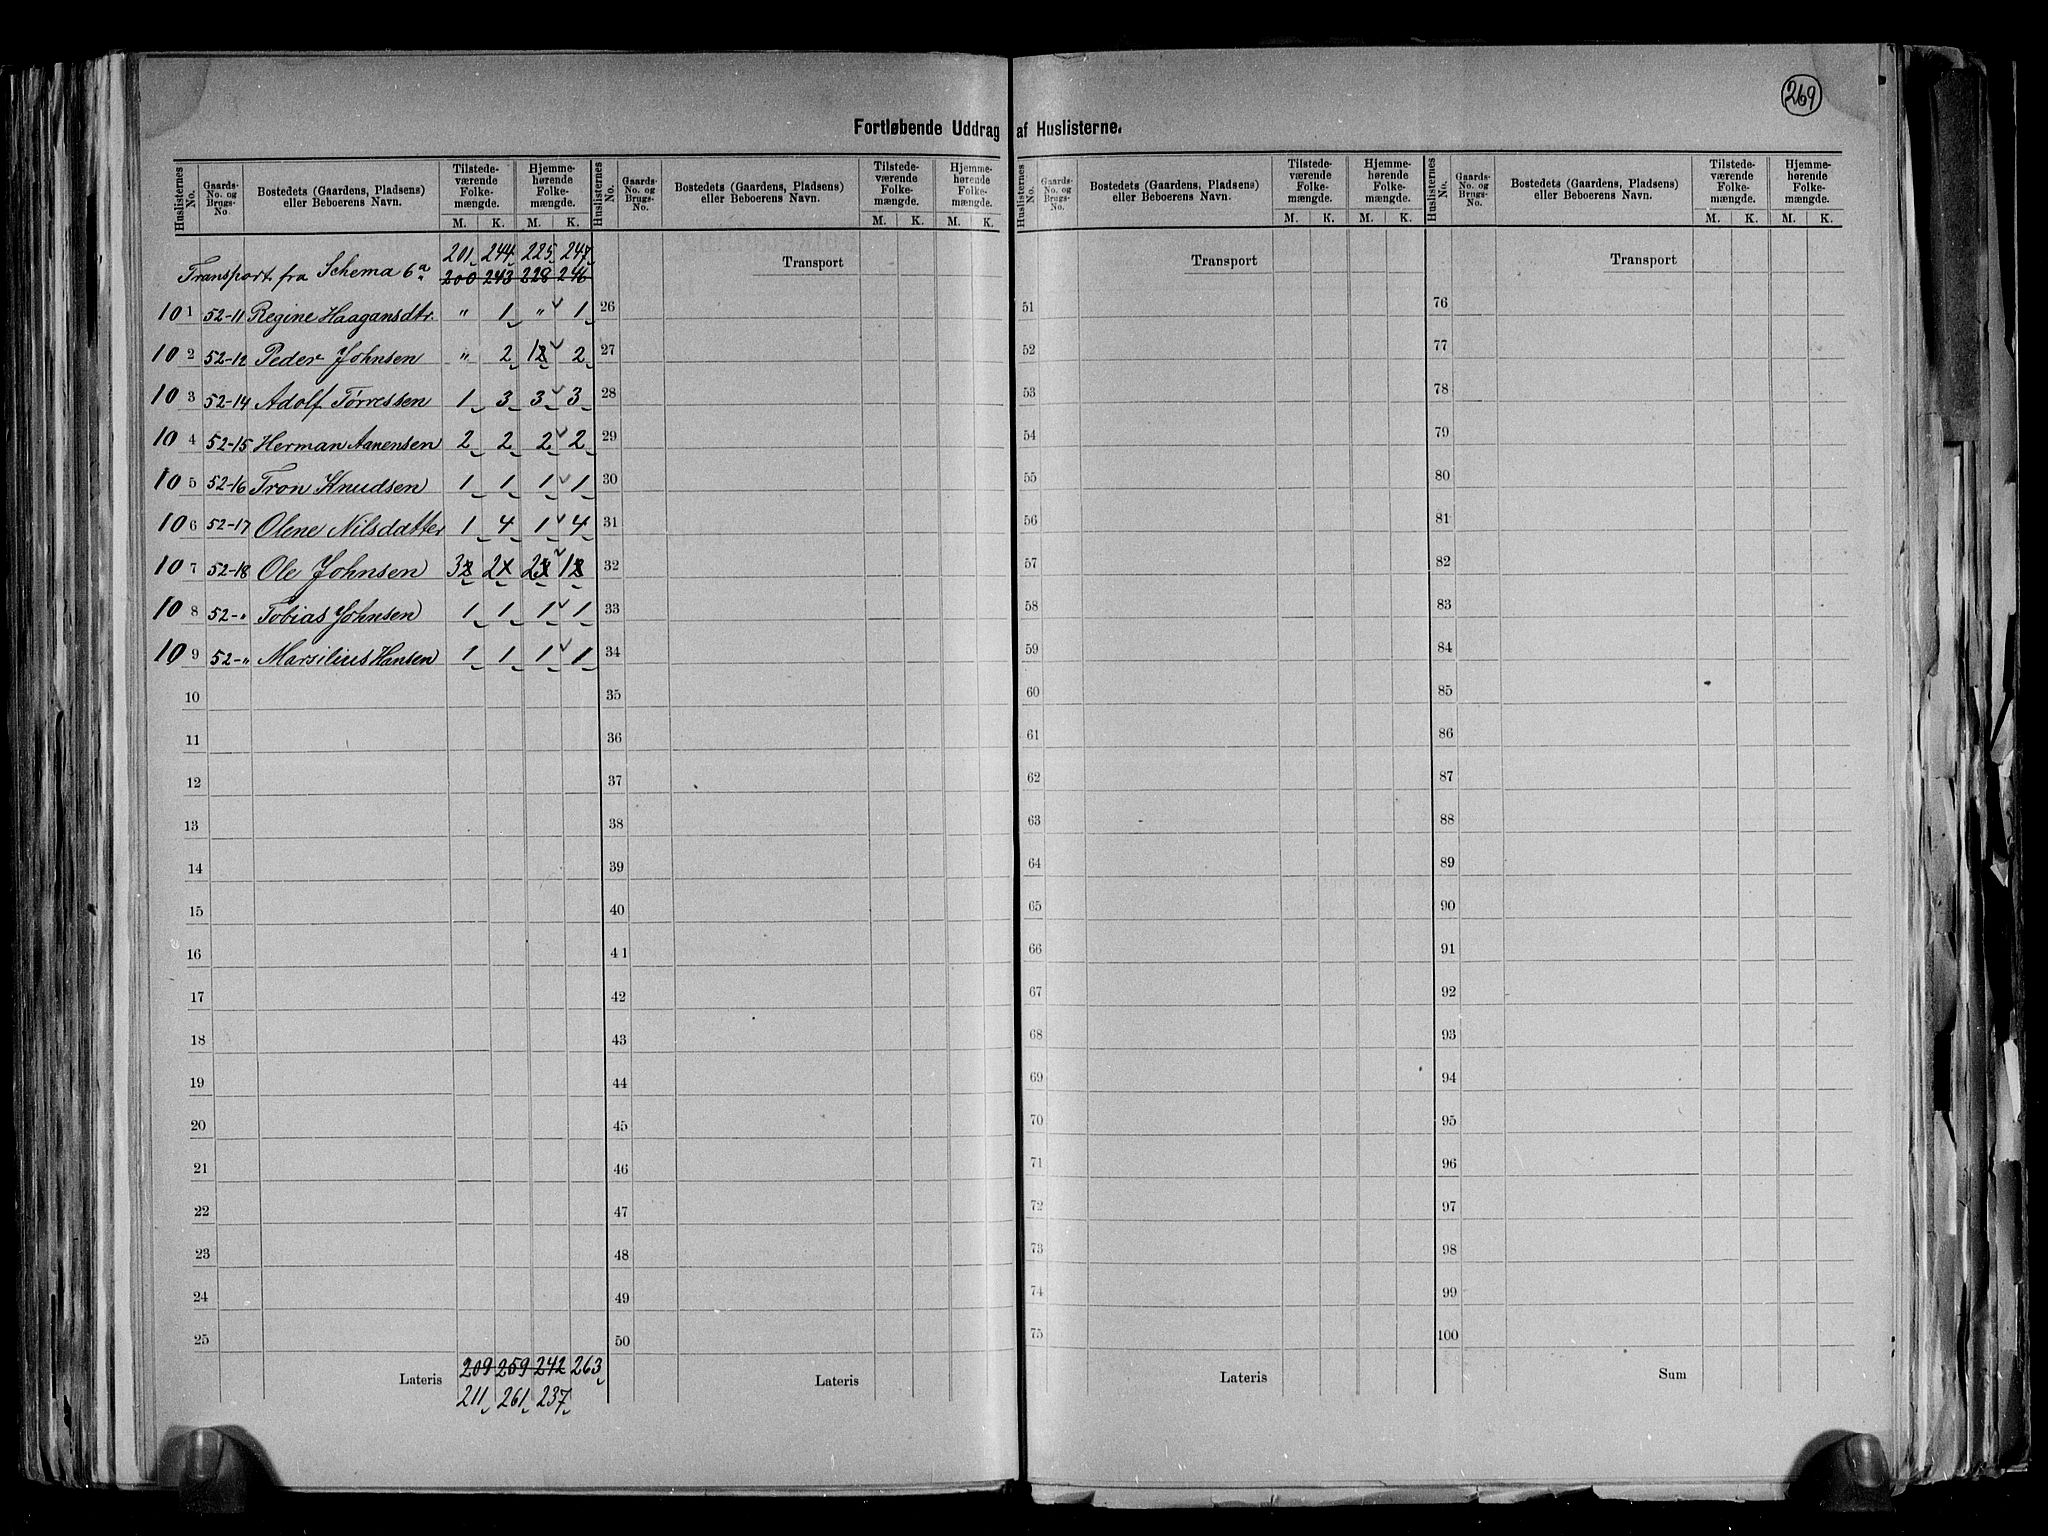 269
Fortløbende Uddrag af Huslisterne.
Huslisternes No. | Gaards-No. og Brugs-No. | Bostedets (Gaardens, Pladsens) eller Beboerens Navn. | Tilstedeværende Folkemængde. M. K. | Hjemmehørende Folkemængde. M. K.
Transport fra Schema 6a 201 244 225 247
200 243 228 246
101 52-11 Regine Haagansdtr. " 1 " 1
102 52-12 Peder Johnsen " 2 1 2
103 52-14 Adolf Tørressen 1 3 3 3
104 52-15 Herman Aanensen 2 2 2 2
105 52-16 Tron Knudsen 1 1 1 1
106 52-17 Olene Nilsdatter 1 4 1 4
107 52-18 Ole Johnsen 3 2 2 1
108 52-" Tobias Johnsen 1 1 1 1
109 52-" Marsilius Hansen 1 1 1 1
10
11
12
13
14
15
16
17
18
19
20
21
22
23
24
25
Lateris 209 259 242 263
211 261 237
Huslisternes No. | Gaards-No. og Brugs-No. | Bostedets (Gaardens, Pladsens) eller Beboerens Navn. | Tilstedeværende Folkemængde. M. K. | Hjemmehørende Folkemængde. M. K.
Transport
26
27
28
29
30
31
32
33
34
35
36
37
38
39
40
41
42
43
44
45
46
47
48
49
50
Lateris
Huslisternes No. | Gaards-No. og Brugs-No. | Bostedets (Gaardens, Pladsens) eller Beboerens Navn. | Tilstedeværende Folkemængde. M. K. | Hjemmehørende Folkemængde. M. K.
Transport
51
52
53
54
55
56
57
58
59
60
61
62
63
64
65
66
67
68
69
70
71
72
73
74
75
Lateris
Huslisternes No. | Gaards-No. og Brugs-No. | Bostedets (Gaardens, Pladsens) eller Beboerens Navn. | Tilstedeværende Folkemængde. M. K. | Hjemmehørende Folkemængde. M. K.
Transport
76
77
78
79
80
81
82
83
84
85
86
87
88
89
90
91
92
93
94
95
96
97
98
99
100
Sum